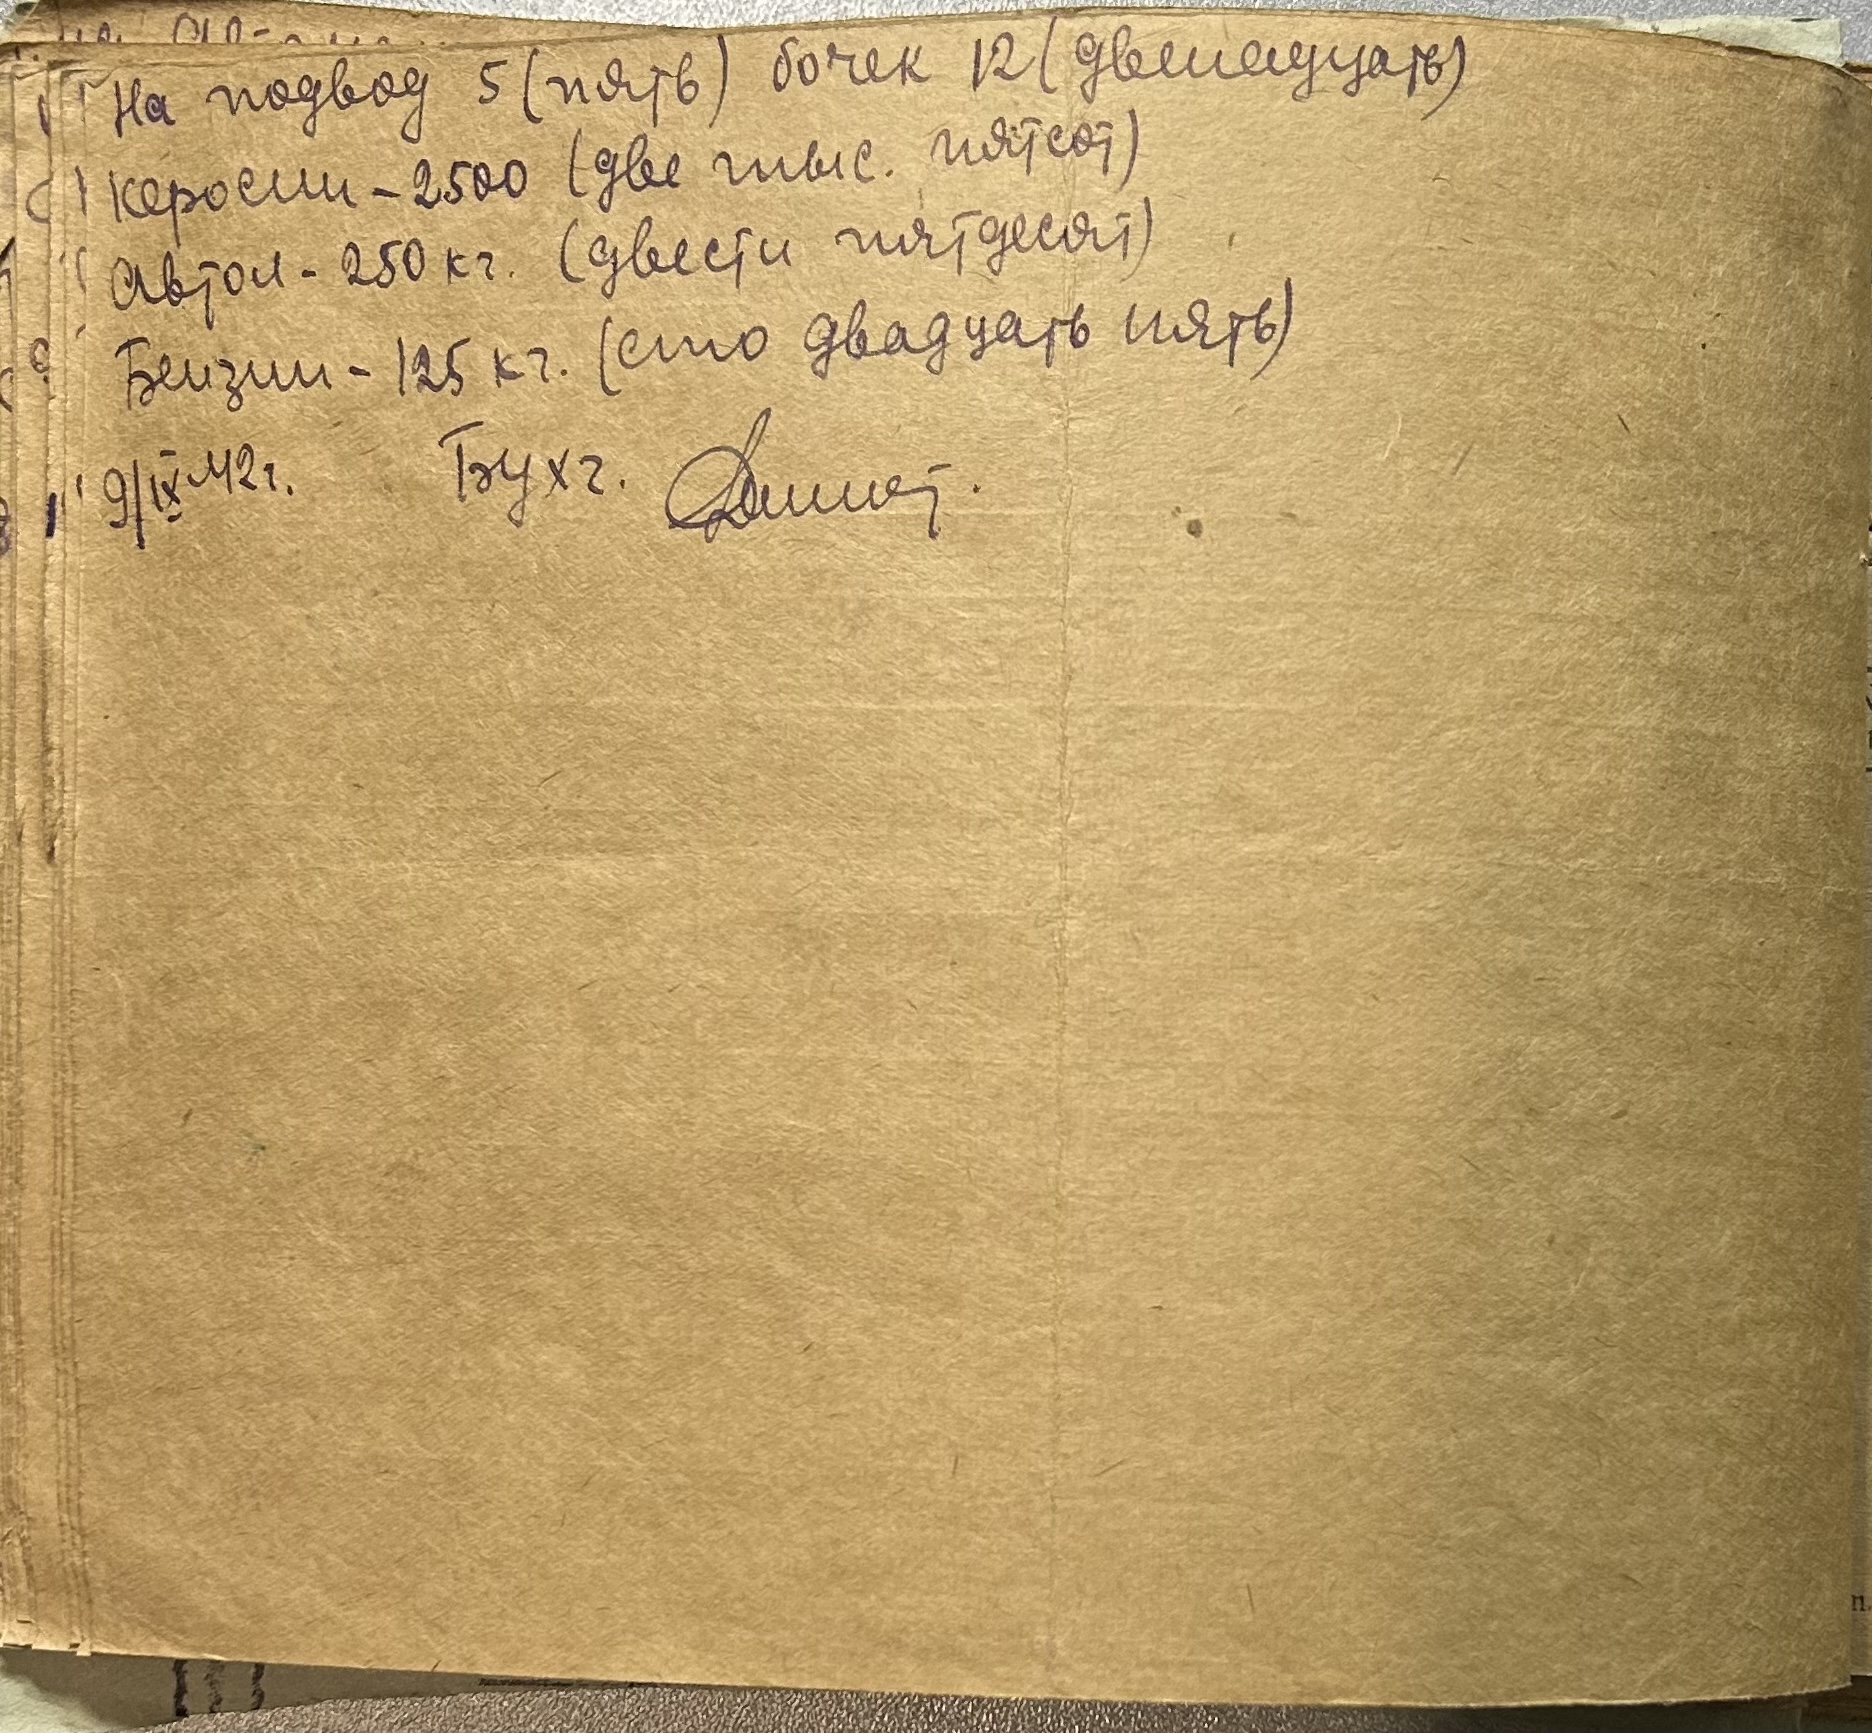 На подвод 5 (пять) бочек 12 (двенадцать)
Керосин - 2500 (две тыс. пятсот)
Автол - 250 кг. (двести пятдесят)
Бензин - 125 кг. (сто двадцать пять)
9/IX 42 г. Бухг.